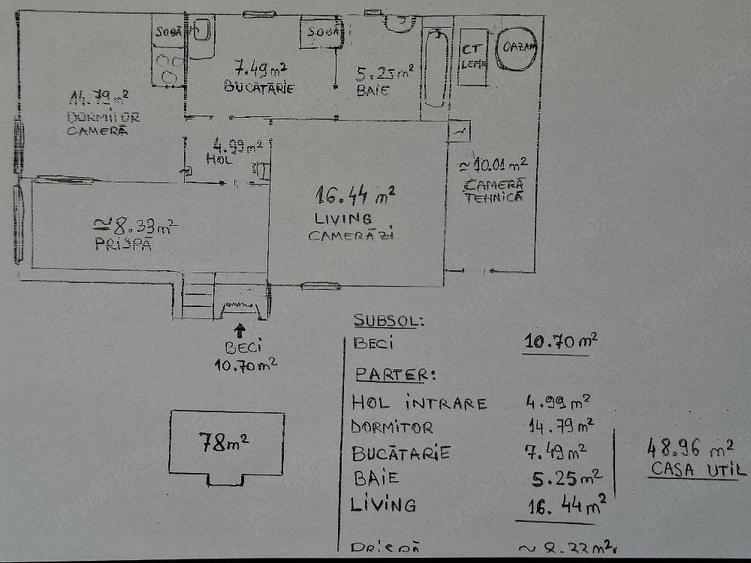 SOBĂ
SOBĂ
CT
LEMN
CAZAN
14.79 m²
DORMITOR
CAMERĂ
7.49 m²
BUCĂTĂRIE
5.25 m²
BAIE
4.99 m²
HOL
≃ 10.01 m²
CAMERĂ
TEHNICĂ
16.44 m²
LIVING
CAMERĂ ZI
≃ 8.33 m²
PRISPĂ
BECI
10.70 m²
78 m²
SUBSOL:
BECI 10.70 m²
PARTER:
HOL INTRARE 4.99 m²
DORMITOR 14.79 m²
BUCĂTARIE 7.49 m²
BAIE 5.25 m²
LIVING 16.44 m²
48.96 m²
CASA UTIL